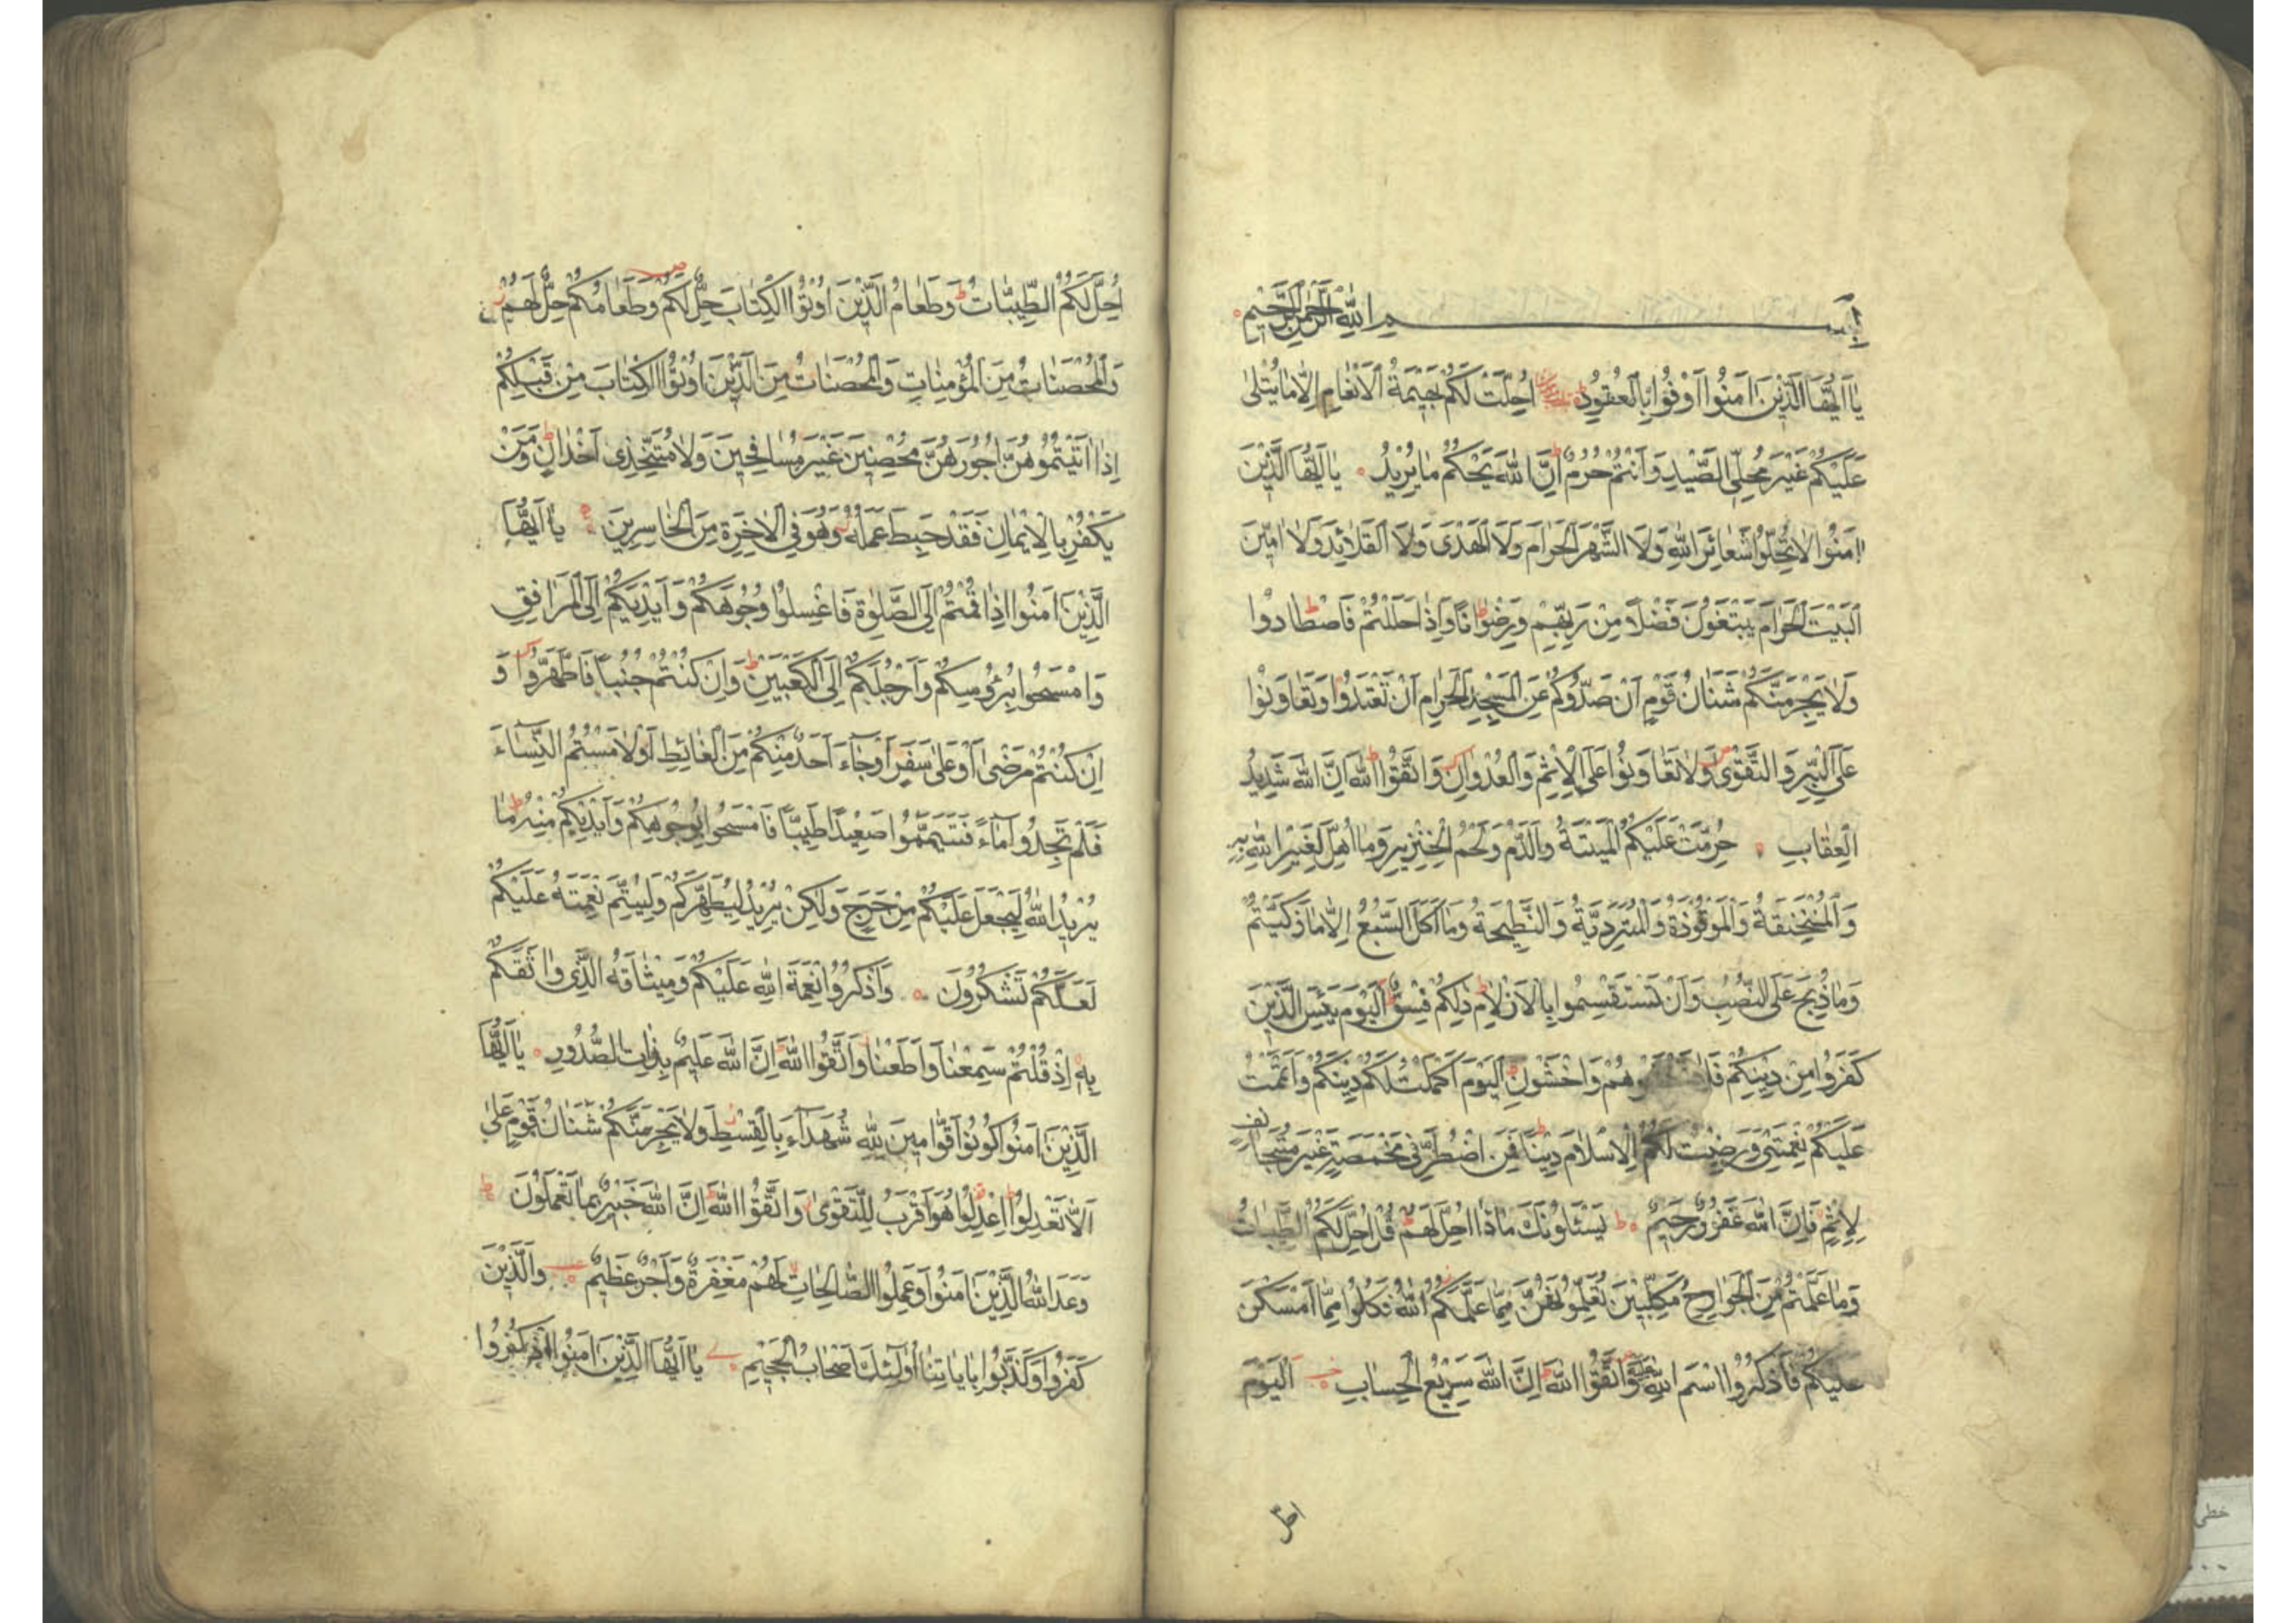 بسم الله الرحمن الرحيم
يَا اَيُّهَا الَّذِيْنَ اٰمَنُوا اَوْفُوْا بِالْعُقُوْدِ اُحِلَّتْ لَكُمْ بَهِيْمَةُ الْاَنْعَامِ اِلَّا مَا يُتْلٰى
عَلَيْكُمْ غَيْرَ مُحِلِّى الصَّيْدِ وَاَنْتُمْ حُرُمٌ اِنَّ اللّٰهَ يَحْكُمُ مَا يُرِيْدُ يَا اَيُّهَا الَّذِيْنَ
اٰمَنُوا لَا تُحِلُّوا شَعَائِرَ اللّٰهِ وَلَا الشَّهْرَ الْحَرَامَ وَلَا الْهَدْىَ وَلَا الْقَلَائِدَ وَلَا اٰمِّيْنَ
الْبَيْتَ الْحَرَامَ يَبْتَغُوْنَ فَضْلًا مِنْ رَبِّهِمْ وَرِضْوَانًا وَاِذَا حَلَلْتُمْ فَاصْطَادُوْا
وَلَا يَجْرِمَنَّكُمْ شَنَاٰنُ قَوْمٍ اَنْ صَدُّوْكُمْ عَنِ الْمَسْجِدِ الْحَرَامِ اَنْ تَعْتَدُوْا وَتَعَاوَنُوْا
عَلَى الْبِرِّ وَالتَّقْوٰى وَلَا تَعَاوَنُوْا عَلَى الْاِثْمِ وَالْعُدْوَانِ وَاتَّقُوْا اللّٰهَ اِنَّ اللّٰهَ شَدِيْدُ
الْعِقَابِ حُرِّمَتْ عَلَيْكُمُ الْمَيْتَةُ وَالدَّمُ وَلَحْمُ الْخِنْزِيْرِ وَمَا اُهِلَّ لِغَيْرِ اللّٰهِ بِهِ
وَالْمُنْخَنِقَةُ وَالْمَوْقُوْذَةُ وَالْمُتَرَدِّيَةُ وَالنَّطِيْحَةُ وَمَا اَكَلَ السَّبُعُ اِلَّا مَا ذَكَّيْتُمْ
وَمَا ذُبِحَ عَلَى النُّصُبِ وَاَنْ تَسْتَقْسِمُوا بِالْاَزْلَامِ ذٰلِكُمْ فِسْقٌ اَلْيَوْمَ يَئِسَ الَّذِيْنَ
كَفَرُوا مِنْ دِيْنِكُمْ فَلَا تَخْشَوْهُمْ وَاخْشَوْنِ اَلْيَوْمَ اَكْمَلْتُ لَكُمْ دِيْنَكُمْ وَاَتْمَمْتُ
عَلَيْكُمْ نِعْمَتِىْ وَرَضِيْتُ لَكُمُ الْاِسْلَامَ دِيْنًا فَمَنِ اضْطُرَّ فِىْ مَخْمَصَةٍ غَيْرَ مُتَجَانِفٍ
لِاِثْمٍ فَاِنَّ اللّٰهَ غَفُوْرٌ رَحِيْمٌ يَسْئَلُوْنَكَ مَاذَا اُحِلَّ لَهُمْ قُلْ اُحِلَّ لَكُمُ الطَّيِّبَاتُ
وَمَا عَلَّمْتُمْ مِنَ الْجَوَارِحِ مُكَلِّبِيْنَ تُعَلِّمُوْنَهُنَّ مِمَّا عَلَّمَكُمُ اللّٰهُ فَكُلُوا مِمَّا اَمْسَكْنَ
عَلَيْكُمْ فَاذْكُرُوا اسْمَ اللّٰهِ عَلَيْهِ وَاتَّقُوْا اللّٰهَ اِنَّ اللّٰهَ سَرِيْعُ الْحِسَابِ اَلْيَوْمَ
احل
اُحِلَّ لَكُمُ الطَّيِّبَاتُ وَطَعَامُ الَّذِيْنَ اُوْتُوْا الْكِتَابَ حِلٌّ لَكُمْ وَطَعَامُكُمْ حِلٌّ لَهُمْ
وَالْمُحْصَنَاتُ مِنَ الْمُؤْمِنَاتِ وَالْمُحْصَنَاتُ مِنَ الَّذِيْنَ اُوْتُوْا الْكِتَابَ مِنْ قَبْلِكُمْ
اِذَا اٰتَيْتُمُوْهُنَّ اُجُوْرَهُنَّ مُحْصِنِيْنَ غَيْرَ مُسَافِحِيْنَ وَلَا مُتَّخِذِى اَخْدَانٍ وَمَنْ
يَكْفُرْ بِالْاِيْمَانِ فَقَدْ حَبِطَ عَمَلُهُ وَهُوَ فِى الْاٰخِرَةِ مِنَ الْخَاسِرِيْنَ يَا اَيُّهَا
الَّذِيْنَ اٰمَنُوا اِذَا قُمْتُمْ اِلَى الصَّلٰوةِ فَاغْسِلُوْا وُجُوْهَكُمْ وَاَيْدِيَكُمْ اِلَى الْمَرَافِقِ
وَامْسَحُوا بِرُؤُسِكُمْ وَاَرْجُلَكُمْ اِلَى الْكَعْبَيْنِ وَاِنْ كُنْتُمْ جُنُبًا فَاطَّهَّرُوْا وَ
اِنْ كُنْتُمْ مَرْضٰى اَوْ عَلٰى سَفَرٍ اَوْ جَاءَ اَحَدٌ مِنْكُمْ مِنَ الْغَائِطِ اَوْ لَامَسْتُمُ النِّسَاءَ
فَلَمْ تَجِدُوا مَاءً فَتَيَمَّمُوْا صَعِيْدًا طَيِّبًا فَامْسَحُوا بِوُجُوْهِكُمْ وَاَيْدِيْكُمْ مِنْهُ مَا
يُرِيْدُ اللّٰهُ لِيَجْعَلَ عَلَيْكُمْ مِنْ حَرَجٍ وَلٰكِنْ يُرِيْدُ لِيُطَهِّرَكُمْ وَلِيُتِمَّ نِعْمَتَهُ عَلَيْكُمْ
لَعَلَّكُمْ تَشْكُرُوْنَ وَاذْكُرُوْا نِعْمَةَ اللّٰهِ عَلَيْكُمْ وَمِيْثَاقَهُ الَّذِى وَاثَقَكُمْ
بِهِ اِذْ قُلْتُمْ سَمِعْنَا وَاَطَعْنَا وَاتَّقُوْا اللّٰهَ اِنَّ اللّٰهَ عَلِيْمٌ بِذَاتِ الصُّدُوْرِ يَا اَيُّهَا
الَّذِيْنَ اٰمَنُوْا كُوْنُوْا قَوَّامِيْنَ لِلّٰهِ شُهَدَاءَ بِالْقِسْطِ وَلَا يَجْرِمَنَّكُمْ شَنَاٰنُ قَوْمٍ عَلٰى
اَلَّا تَعْدِلُوْا اِعْدِلُوْا هُوَ اَقْرَبُ لِلتَّقْوٰى وَاتَّقُوْا اللّٰهَ اِنَّ اللّٰهَ خَبِيْرٌ بِمَا تَعْمَلُوْنَ
وَعَدَ اللّٰهُ الَّذِيْنَ اٰمَنُوْا وَعَمِلُوا الصَّالِحَاتِ لَهُمْ مَغْفِرَةٌ وَاَجْرٌ عَظِيْمٌ وَالَّذِيْنَ
كَفَرُوْا وَكَذَّبُوْا بِاٰيَاتِنَا اُولٰئِكَ اَصْحَابُ الْجَحِيْمِ يَا اَيُّهَا الَّذِيْنَ اٰمَنُوا اذْكُرُوا
خطی